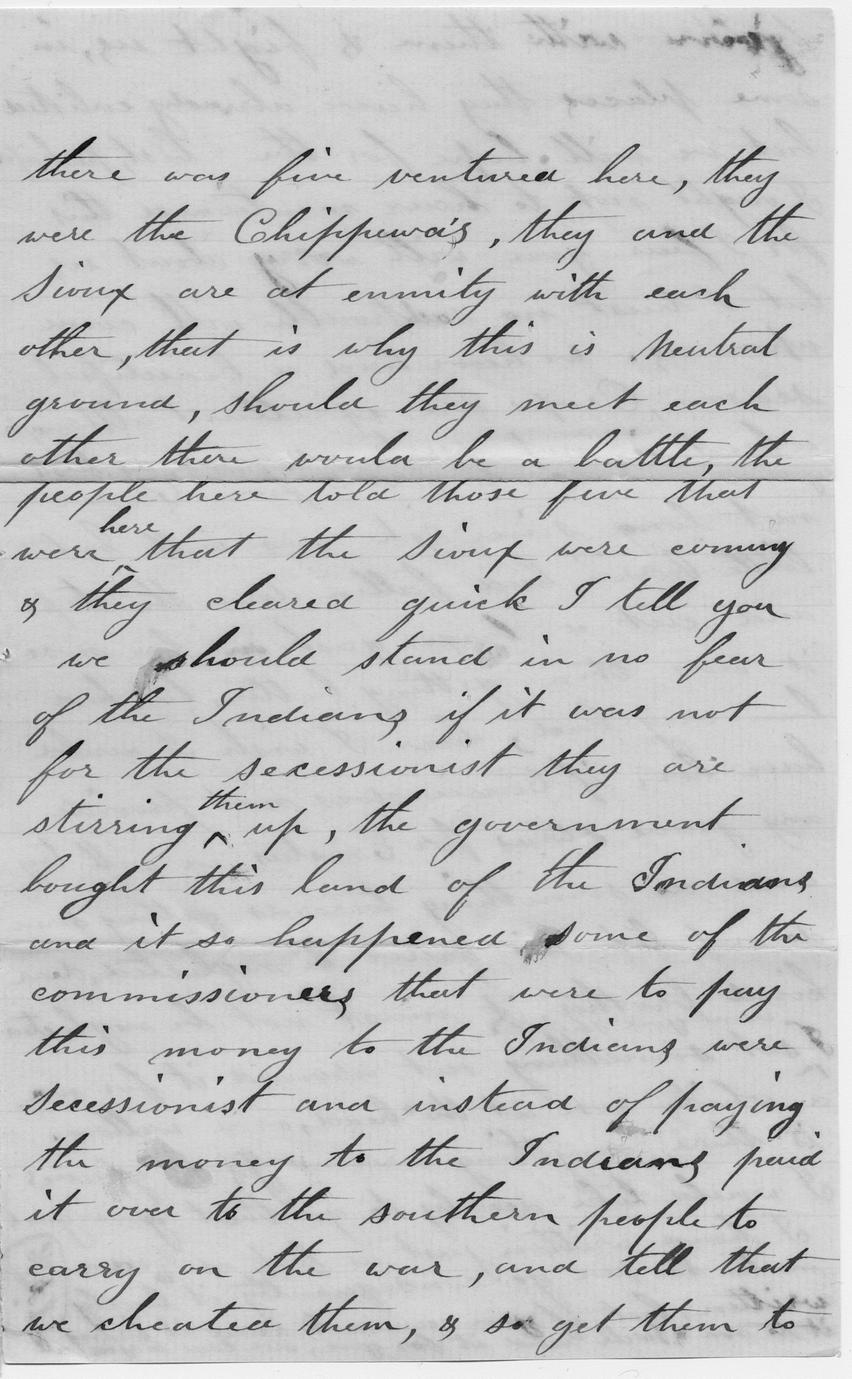 there was five ventured here, they
were the Chippewa's, they and the
Sioux are at enmity with each
other, that is why this is Neutral
ground, should they meet each
other there would be a battle, the
people here told those five that
were here that the Sioux were coming
& they cleared quick I tell you
we should stand in no fear
of the Indians if it was not
for the secessionist they are
stirring them up, the government
bought this land of the Indians
and it so happened some of the
commissioners that were to pay
this money to the Indians were
secessionist and instead of paying
the money to the Indians paid
it over to the southern people to
carry on the war, and tell that
we cheated them, & so get them to